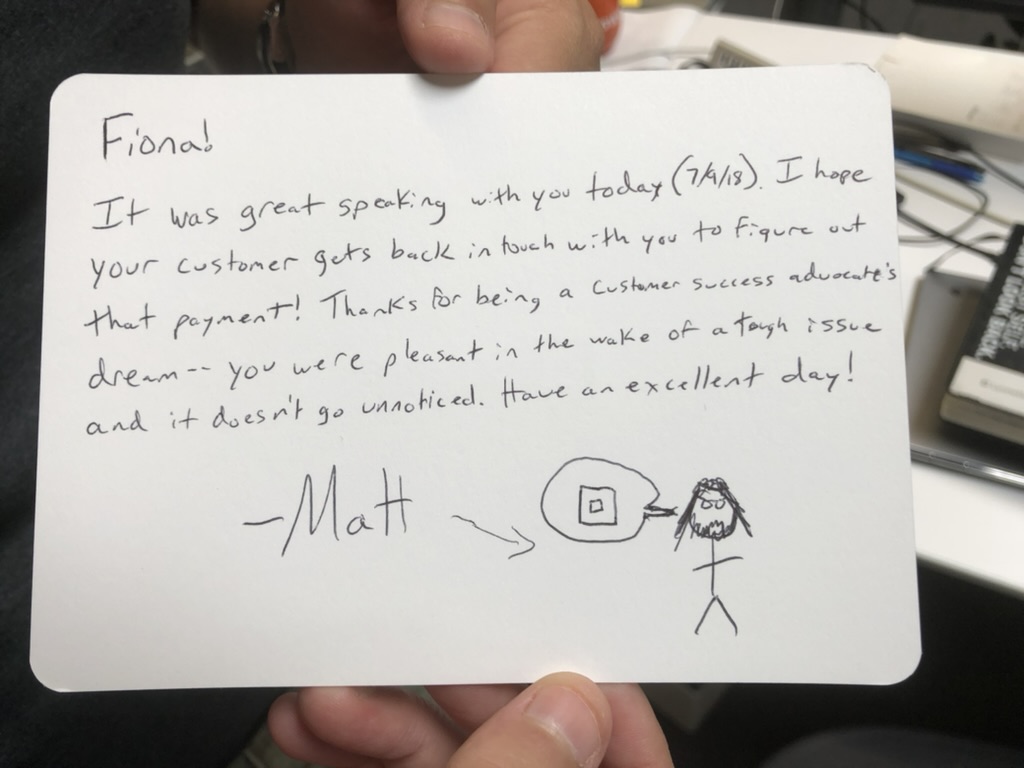 Fiona!
It was great speaking with you today (7/9/18). I hope
your customer gets back in touch with you to figure out
that payment! Thanks for being a customer success advocate's
dream-- you were pleasant in the wake of a tough issue
and it doesn't go unnoticed. Have an excellent day!
-Matt